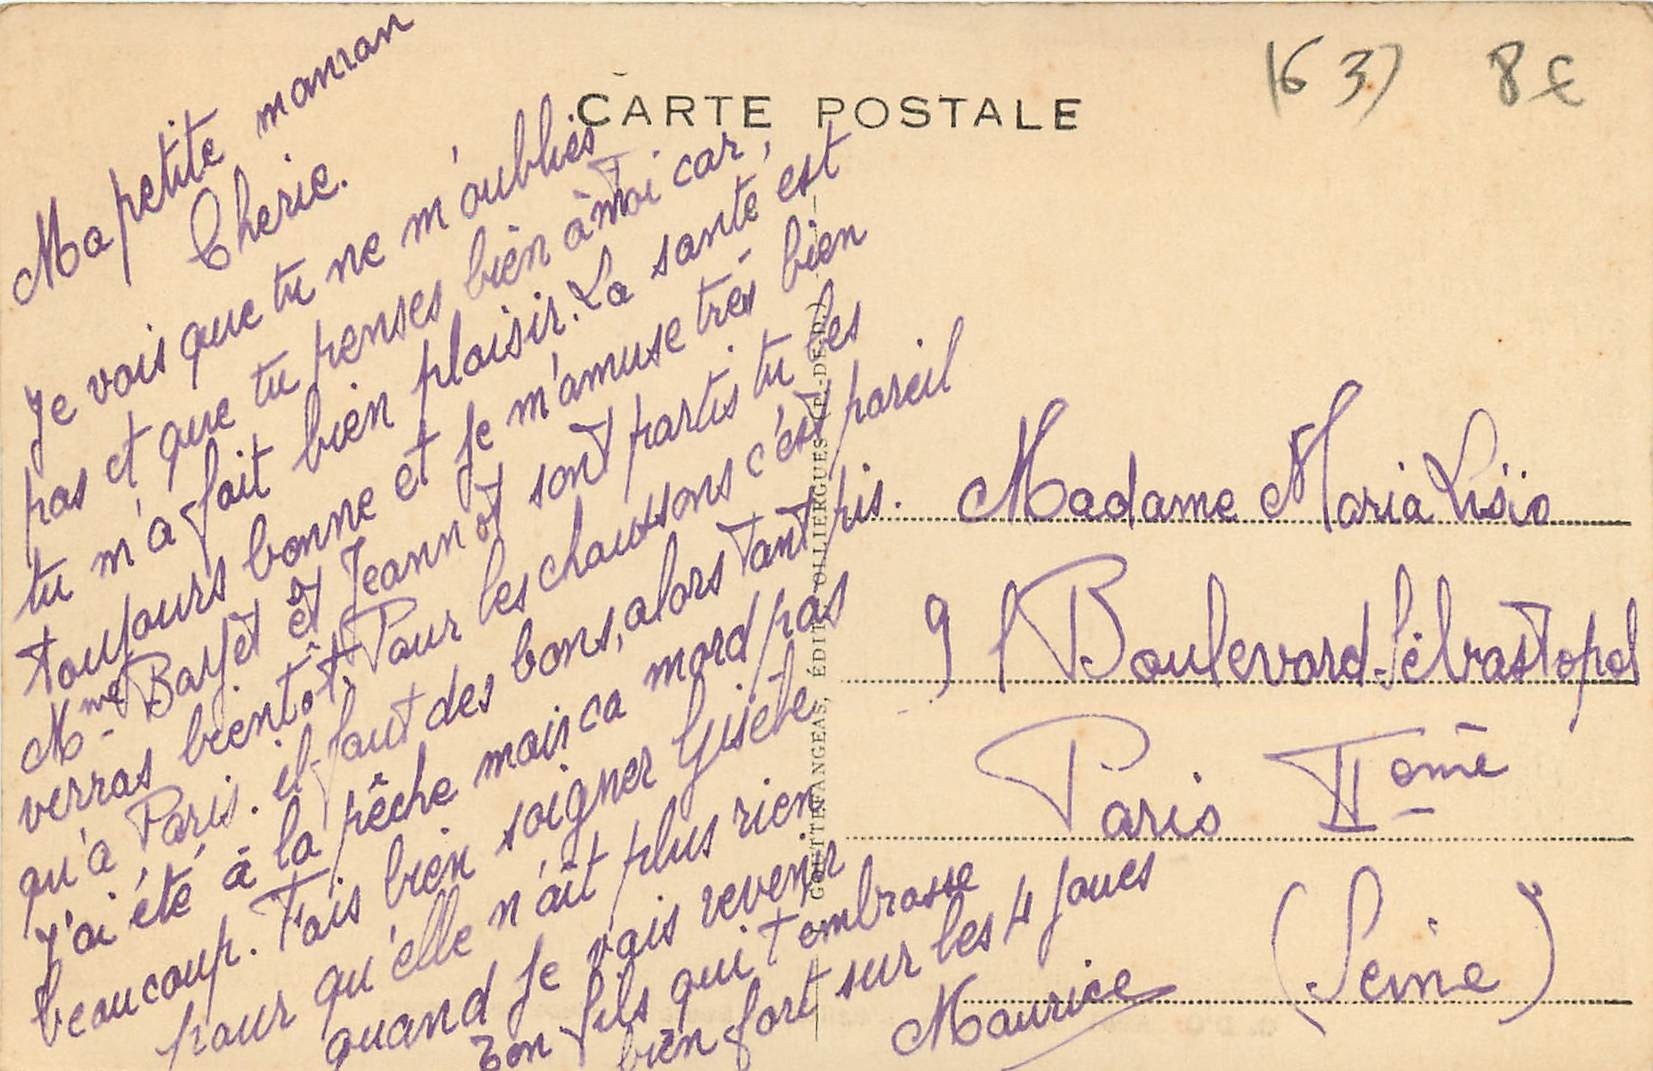 CARTE POSTALE
(63) 8€
Ma petite maman
Cherie.
Je vois que tu ne m'oublies
pas et que tu penses bien à moi car,
tu m'a fait bien plaisir. La santé est
toujours bonne et je m'amuse très bien
Mme Barjet et Jeannot sont partis tu les
verras bientôt. Pour les chaussons c'est pareil
qu'a Paris. il faut des bons, alors tant pis.
J'ai été à la pêche mais ca mord pas
beaucoup. Fais bien soigner Gisele
pour qu'elle n'ait plus rien
quand je vais revenir
Ton fils qui t'embrasse
bien fort sur les 4 joues
Maurice
GOUTTEFANGEAS, ÉDIT. OLLIERGUES (P.-DE-D.)
Madame Maria
91 Boulevard-Sébastopol
Paris IIeme
(Seine)